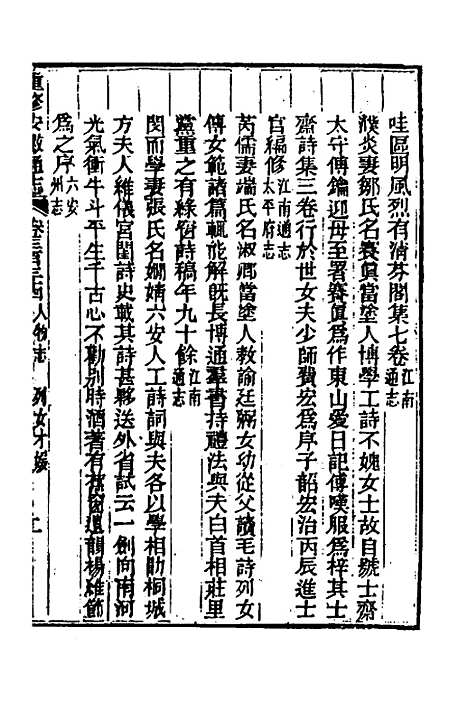 哇區明風烈有清芬閣集七卷江南通志
濮炎妻鄒氏名賽眞當塗人博學工詩不媿女士故自號士齋
太守傅鑰迎母至署賽眞爲作東山愛日記傅嘆服爲梓其士
齋詩集三卷行於世女夫少師費宏爲序子韶宏治丙辰進士
官編修江南通志太平府志
芮儒妻端氏名淑卿當塗人教諭廷弼女幼從父讀毛詩列女
傳女範諸篇輒能解旣長博通羣書持禮法與夫白首相莊里
黨重之有綠窗詩稿年九十餘江南通志
閔而學妻張氏名嫻婧六安人工詩詞與夫各以學相勖桐城
方夫人維儀宮閨詩史載其詩甚夥送外省試云一劍向南河
光氣衝牛斗平生千古心不勸別時酒著有蕉窗遺韻楊維節
爲之序六安州志
重修安徽通志 卷三百三十四人物志 列女才媛